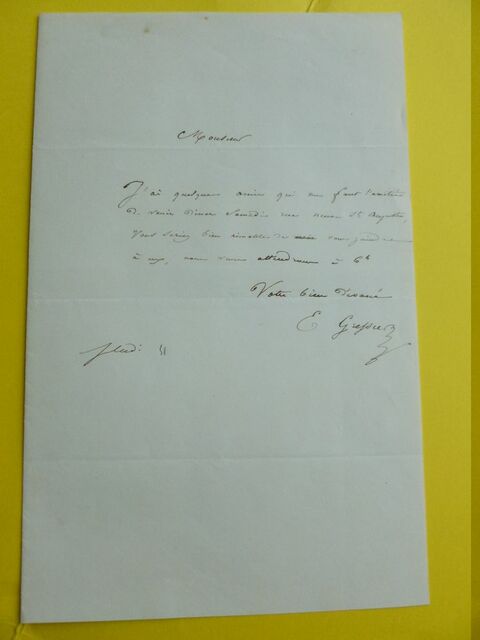 Monsieur
J'ai quelques amis qui me font l'amitié
de venir diner Samedi rue neuve St Augustin
Vous seriez bien aimable de vous joindre
à eux, nous vous attendrons à 6h
Votre bien dévoué
E
Jeudi 11